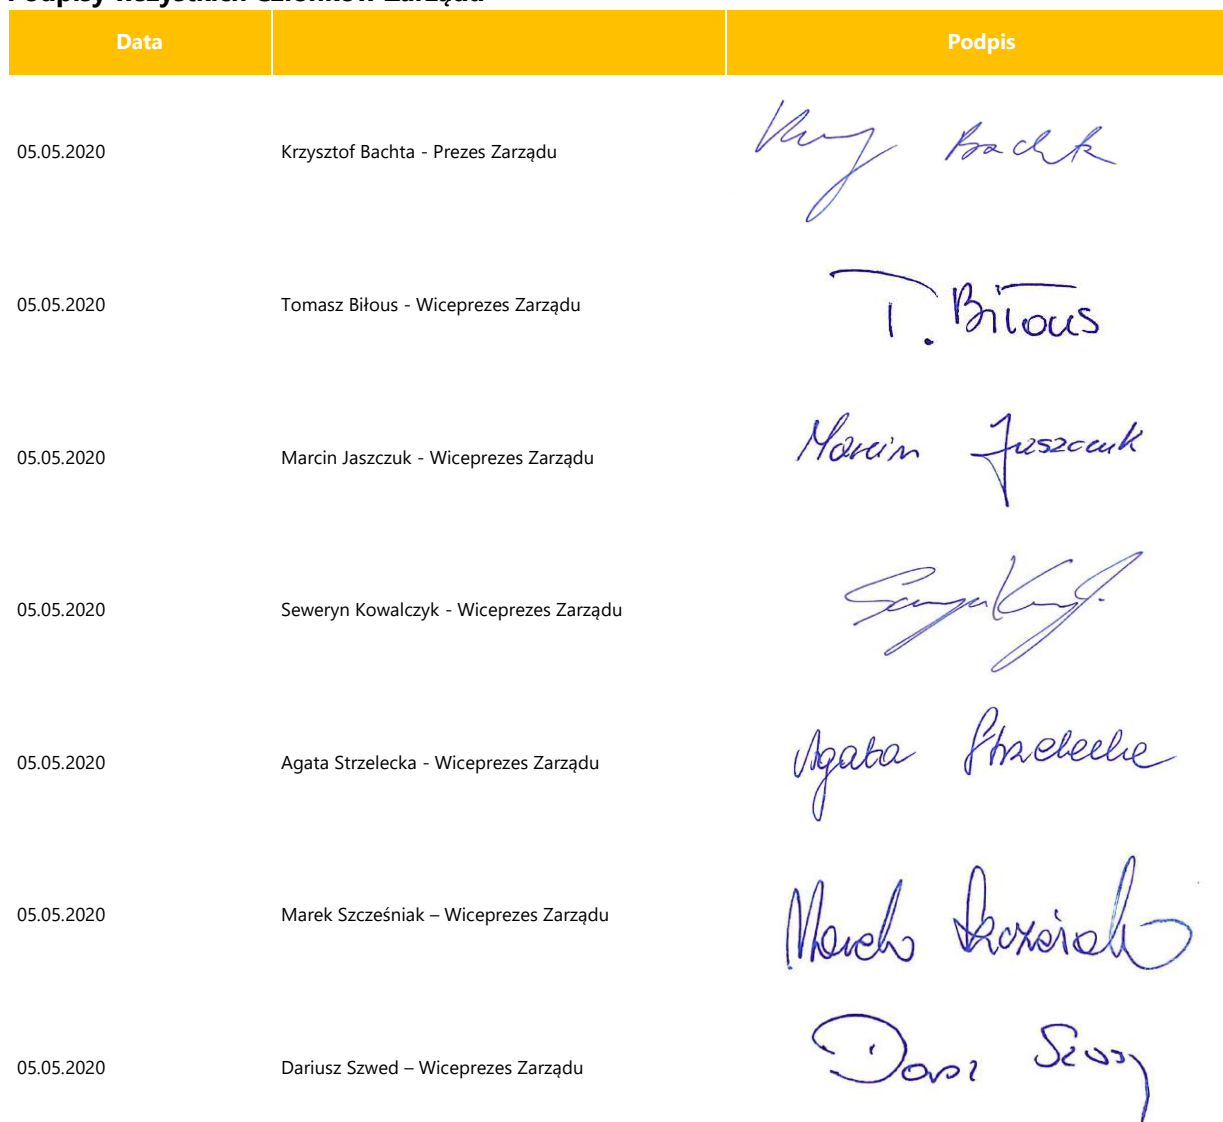 Podpisy wszystkich Członków Zarządu
Data Podpis
05.05.2020 Krzysztof Bachta - Prezes Zarządu
05.05.2020 Tomasz Biłous - Wiceprezes Zarządu T. Biłous
05.05.2020 Marcin Jaszczuk - Wiceprezes Zarządu Marcin Jaszczuk
05.05.2020 Seweryn Kowalczyk - Wiceprezes Zarządu
05.05.2020 Agata Strzelecka - Wiceprezes Zarządu Agata Strzelecka
05.05.2020 Marek Szcześniak – Wiceprezes Zarządu
05.05.2020 Dariusz Szwed – Wiceprezes Zarządu